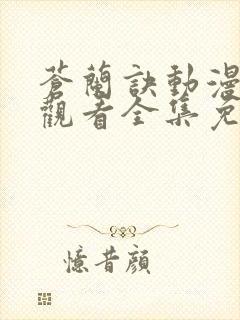 蒼蘭訣動漫
觀看全集免
憶昔顔